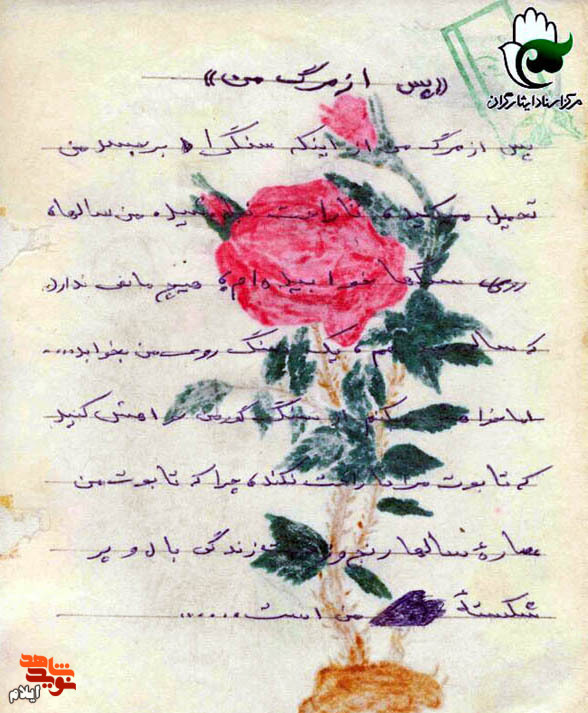 «پس از مرگ من»
پس از مرگ من از اینکه سنگی را بر جسد من
تحمیل میکنید، ناراحت نمیشوید، من سالها
روی سنگها خوابیده‌ام، هیچ مانعی ندارد
که سالی هم، یک سنگ روی من بخوابد....
اما خواهش میکنم از سنگ گور من خواهش کنید
که تابوت مرا ناراحت نکند، چرا که تابوت من
عصارهٔ سالها رنج و زندگی بال و پر
شکستهٔ من است.....
مرکز اسناد ایثارگران
نوید شاهد
ایلام